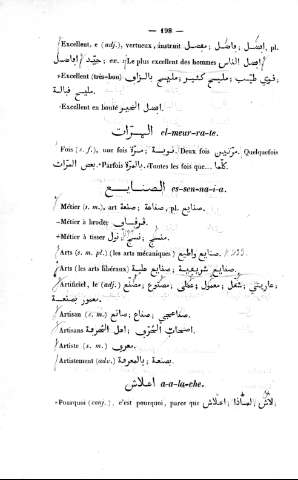 — 198 —
Excellent, e (adj.), vertueux, instruit افضل; فاضل; مفضل, pl.
افاضل; جيّد, ex. Le plus excellent des hommes افضل الناس
Excellent (très-bon) مليح بالزاف; مليح كثير; قوي طيّب;
مليح قبالة.
Excellent en bonté افضل الخير
المرات el-meur-ra-te.
Fois (s. f.), une fois مرّة; Deux fois مرتين. Quelquefois
بعض المرات. Parfois بالمرة. Toutes les fois que... كلّما
الصنايع es-sen-na-i-a.
Métier (s. m.), art صنعة; صناعة, pl. صنايع.
Métier à broder
Métier à tisser منسج; نول
Arts (s. m. pl.) (les arts mécaniques) صنايع
Arts (les arts libéraux) صنايع شريفية; صنايع
Artificiel, le (adj.) مصنّع; مصنوع; معمول; شغل; عاريتي;
بصنعة.
Artisan (s. m.) صانع; صناع; صنايعي.
Artisans اهل الحرفة; اصحاب الحرف.
Artiste (s. m.)
Artistement (adv.) بصنعة; بالمعرفة.
اعلاش a-a-la-che.
Pourquoi (conj.), c'est pourquoi, parce que اعلاش; لماذا; لاش;